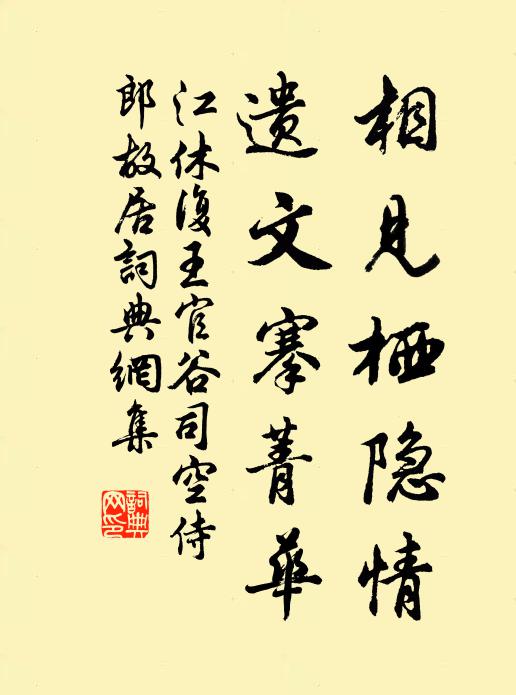 相见栖隐情
遗文搴菁华
江休復王官谷司空侍
郎故居詞典網集
詞典網印